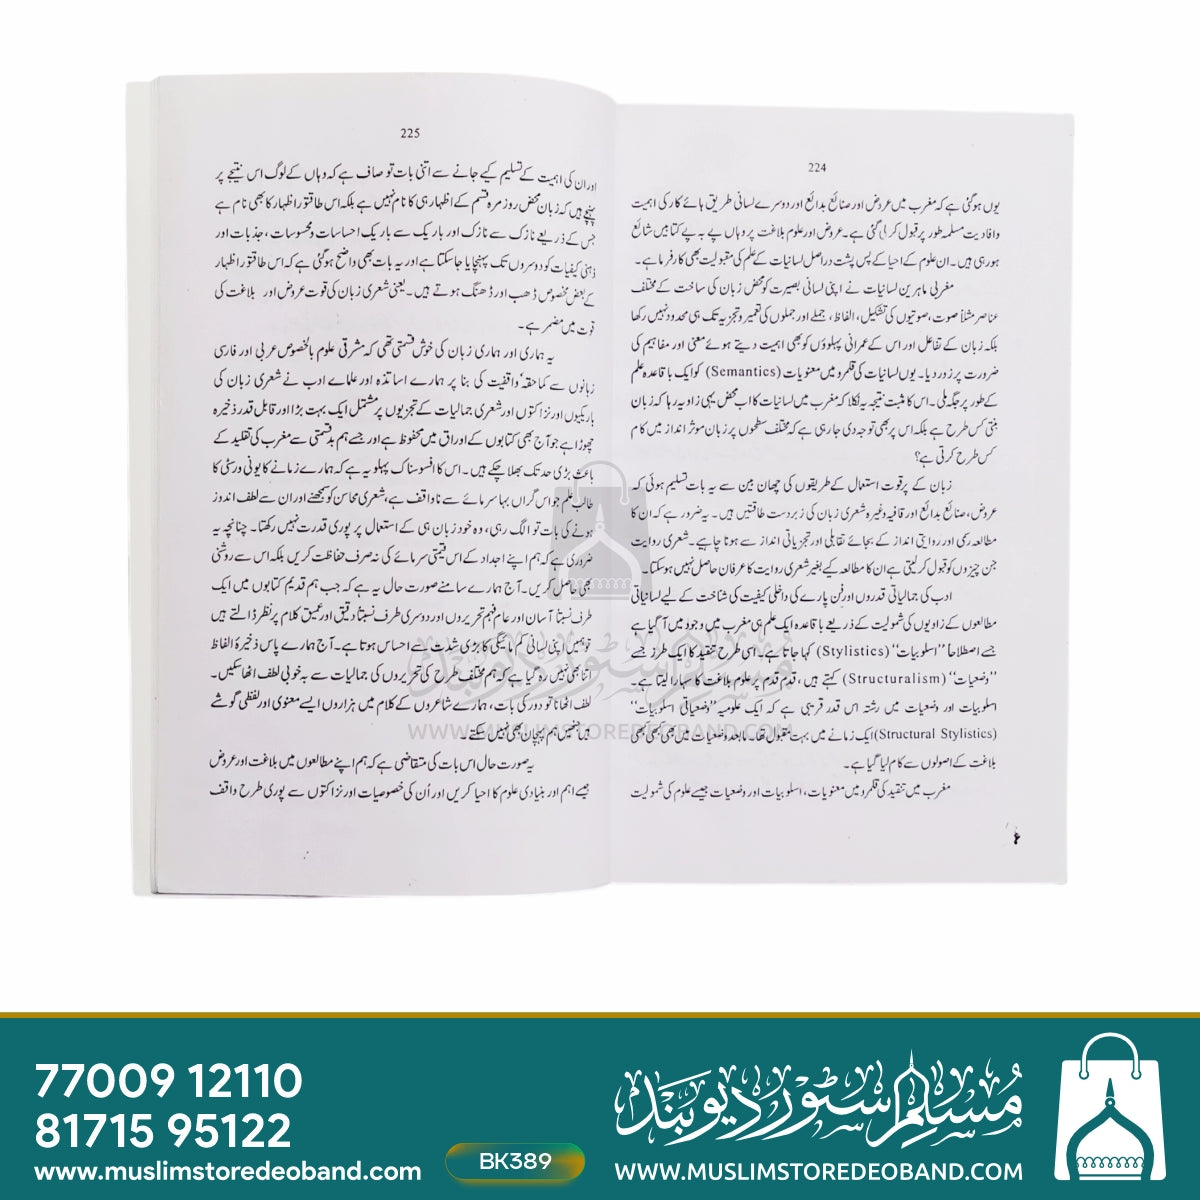 224
یوں ہو گئی ہے کہ مغرب میں عروض اور صنائع بدائع اور دوسرے لسانی طریق ہائے کار کی اہمیت
و افادیت مسلمہ طور پر قبول کر لی گئی ہے۔ عروض اور علوم بلاغت پر وہاں پے بہ پے کتابیں شائع
ہو رہی ہیں۔ ان علوم کے احیا کے پس پشت دراصل لسانیات کے علم کی مقبولیت بھی کارفرما ہے۔
مغربی ماہرین لسانیات نے اپنی لسانی بصیرت کو محض زبان کی ساخت کے مختلف
عناصر مثلاً صوت، صوتیوں کی تشکیل، الفاظ، جملے اور جملوں کی تعمیر و تجزیہ تک ہی محدود نہیں رکھا
بلکہ زبان کے تفاعل اور اس کے عمرانی پہلوؤں کو بھی اہمیت دیتے ہوئے معنی اور مفاہیم کی
ضرورت پر زور دیا۔ یوں لسانیات کی قلمرو میں معنویات (Semantics) کو ایک باقاعدہ علم
کے طور پر جگہ ملی۔ اس کا مثبت نتیجہ یہ نکلا کہ مغرب میں لسانیات کا اب محض یہی زاویہ رہا کہ زبان
بنتی کس طرح ہے بلکہ اس پر بھی توجہ دی جا رہی ہے کہ مختلف سطحوں پر زبان موثر انداز میں کام
کس طرح کرتی ہے؟
زبان کے پرقوت استعمال کے طریقوں کی چھان بین سے یہ بات تسلیم ہوئی کہ
عروض، صنائع بدائع اور قافیہ وغیرہ شعری زبان کی زبردست طاقتیں ہیں۔ یہ ضرور ہے کہ ان کا
مطالعہ رسمی اور روایتی انداز کے بجائے تقابلی اور تجزیاتی انداز سے ہونا چاہیے۔ شعری روایت
جن چیزوں کو قبول کر لیتی ہے ان کا مطالعہ کیے بغیر شعری روایت کا عرفان حاصل نہیں ہو سکتا۔
ادب کی جمالیاتی قدروں اور فن پارے کی داخلی کیفیت کی شناخت کے لیے لسانیاتی
مطالعوں کے زاویوں کی شمولیت کے ذریعے باقاعدہ ایک علم ہی مغرب میں وجود میں آ گیا ہے
جسے اصطلاحاً "اسلوبیات" (Stylistics) کہا جاتا ہے۔ اسی طرح تنقید کا ایک طرز جسے
"وضعیات" (Structuralism) کہتے ہیں، قدم قدم پر علوم بلاغت کا سہارا لیتا ہے۔
اسلوبیات اور وضعیات میں رشتہ اس قدر قریبی ہے کہ ایک علومیہ "وضعیاتی اسلوبیات"
(Structural Stylistics) ایک زمانے میں بہت مقبول تھا۔ مابعد وضعیات میں بھی کبھی کبھی
بلاغت کے اصولوں سے کام لیا گیا ہے۔
مغرب میں تنقید کی قلمرو میں معنویات، اسلوبیات اور وضعیات جیسے علوم کی شمولیت
225
اور ان کی اہمیت کے تسلیم کیے جانے سے اتنی بات تو صاف ہے کہ وہاں کے لوگ اس نتیجے پر
پہنچے ہیں کہ زبان محض روزمرہ قسم کے اظہار ہی کا نام نہیں ہے بلکہ اس طاقتور اظہار کا بھی نام ہے
جس کے ذریعے نازک سے نازک اور باریک سے باریک احساسات و محسوسات، جذبات اور
ذہنی کیفیات کو دوسروں تک پہنچایا جا سکتا ہے اور یہ بات بھی واضح ہو گئی ہے کہ اس طاقتور اظہار
کے بعض مخصوص ڈھب اور ڈھنگ ہوتے ہیں۔ یعنی شعری زبان کی قوت عروض اور بلاغت کی
قوت میں مضمر ہے۔
یہ ہماری اور ہماری زبان کی خوش قسمتی تھی کہ مشرقی علوم بالخصوص عربی اور فارسی
زبانوں سے کماحقہٗ واقفیت کی بنا پر ہمارے اساتذہ اور علمائے ادب نے شعری زبان کی
باریکیوں اور نزاکتوں اور شعری جمالیات کے تجزیوں پر مشتمل ایک بہت بڑا اور قابل قدر ذخیرہ
چھوڑا ہے جو آج بھی کتابوں کے اوراق میں محفوظ ہے اور جسے ہم بدقسمتی سے مغرب کی تقلید کے
باعث بڑی حد تک بھلا چکے ہیں۔ اس کا افسوسناک پہلو یہ ہے کہ ہمارے زمانے کا یونی ورسٹی کا
طالب علم جو اس گراں بہا سرمائے سے ناواقف ہے، شعری محاسن کو سمجھنے اور ان سے لطف اندوز
ہونے کی بات تو الگ رہی، وہ خود زبان ہی کے استعمال پر پوری قدرت نہیں رکھتا۔ چنانچہ یہ
ضروری ہے کہ ہم اپنے اجداد کے اس قیمتی سرمائے کی نہ صرف حفاظت کریں بلکہ اس سے روشنی
بھی حاصل کریں۔ آج ہمارے سامنے صورت حال یہ ہے کہ جب ہم قدیم کتابوں میں ایک
طرف نسبتاً آسان اور عام فہم تحریروں اور دوسری طرف نسبتاً دقیق اور عمیق کلام پر نظر ڈالتے ہیں
تو ہمیں اپنی لسانی کم مائیگی کا بڑی شدت سے احساس ہوتا ہے۔ آج ہمارے پاس ذخیرۂ الفاظ
اتنا بھی نہیں رہ گیا ہے کہ ہم مختلف طرح کی تحریروں کی جمالیات سے بہ خوبی لطف اٹھا سکیں۔
لطف اٹھانا تو دور کی بات، ہمارے شاعروں کے کلام میں ہزاروں ایسے معنوی اور لفظی گوشے
ہیں جنھیں ہم پہچان بھی نہیں سکتے۔
یہ صورت حال اس بات کی متقاضی ہے کہ ہم اپنے مطالعوں میں بلاغت اور عروض
جیسے اہم اور بنیادی علوم کا احیا کریں اور اُن کی خصوصیات اور نزاکتوں سے پوری طرح واقف
مسلم سٹور دیوبند
WWW.MUSLIMSTOREDEOBAND.COM
77009 12110
81715 95122
www.muslimstoredeoband.com
BK389
مسلم سٹور دیوبند
WWW.MUSLIMSTOREDEOBAND.COM